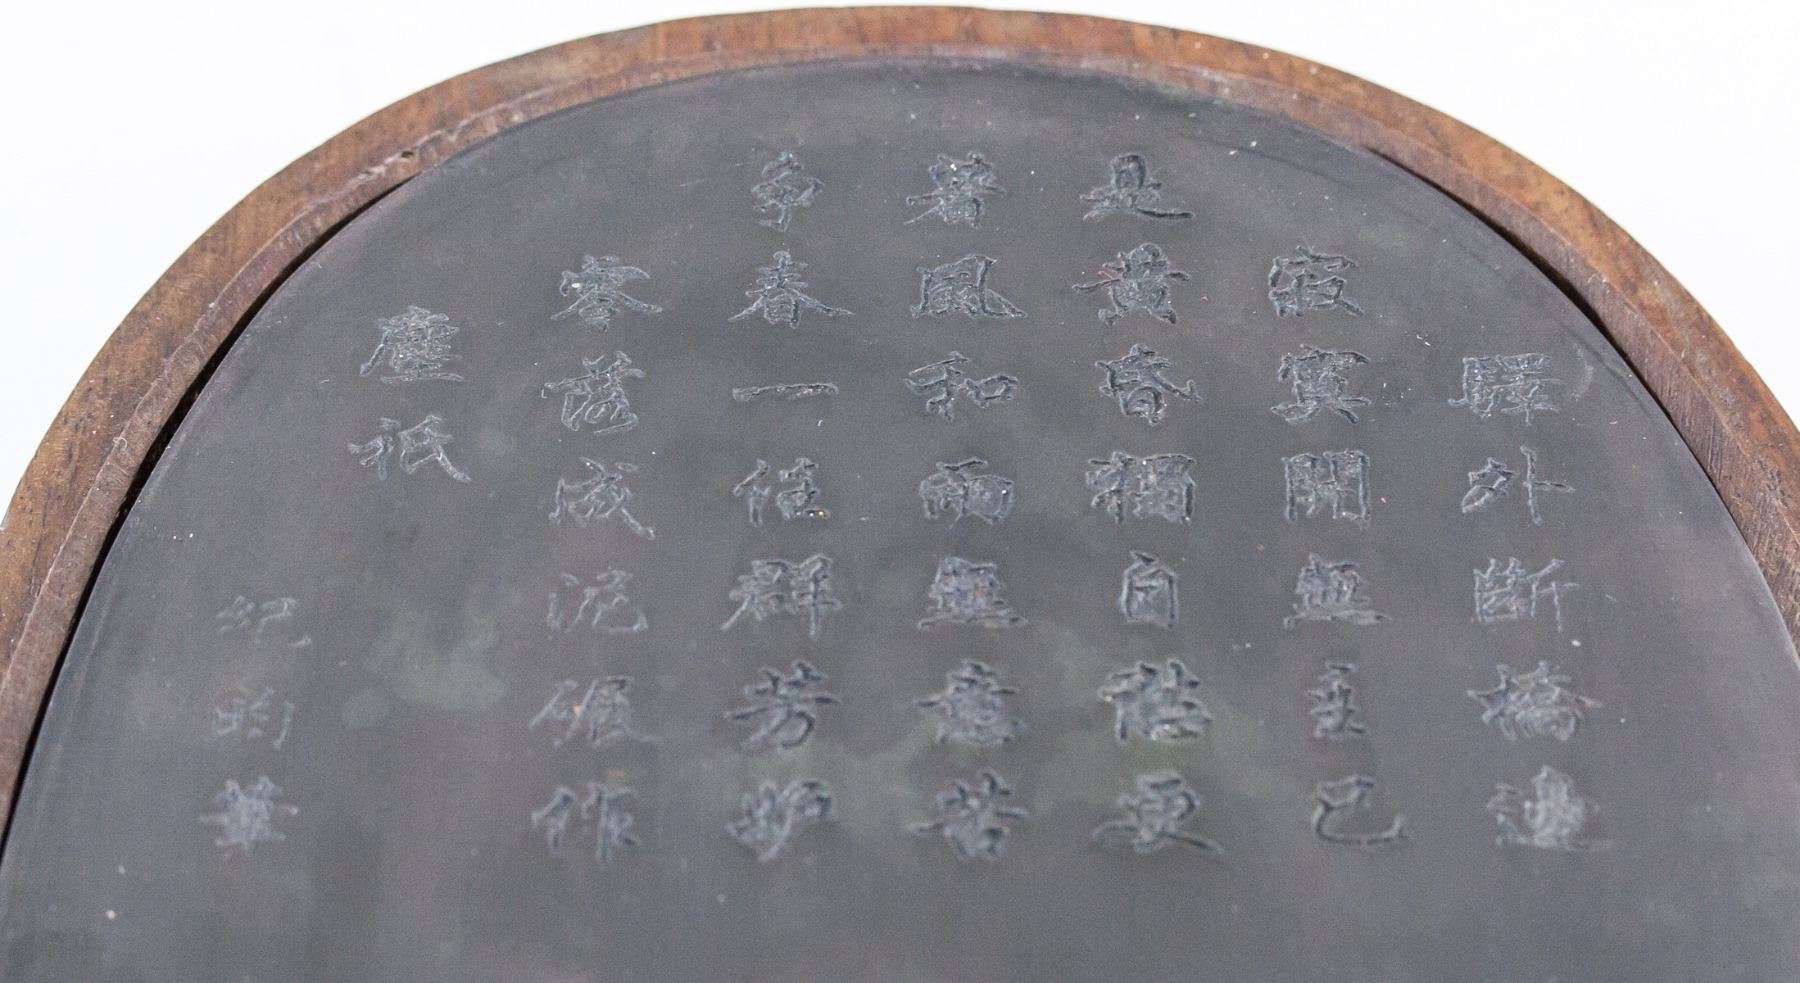 驛外斷橋邊
寂寞開無主已
是黃昏獨自愁更
著風和雨無意苦
争春一任群芳妒
零落成泥碾作
塵祇
紀昀